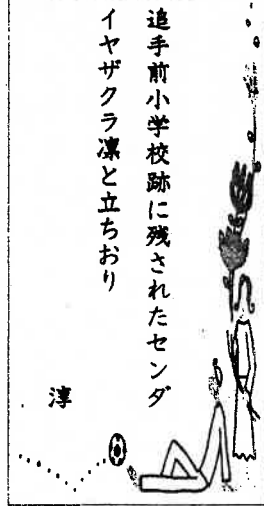 追手前小学校跡に残されたセンダ
イヤザクラ凛と立ちおり
淳